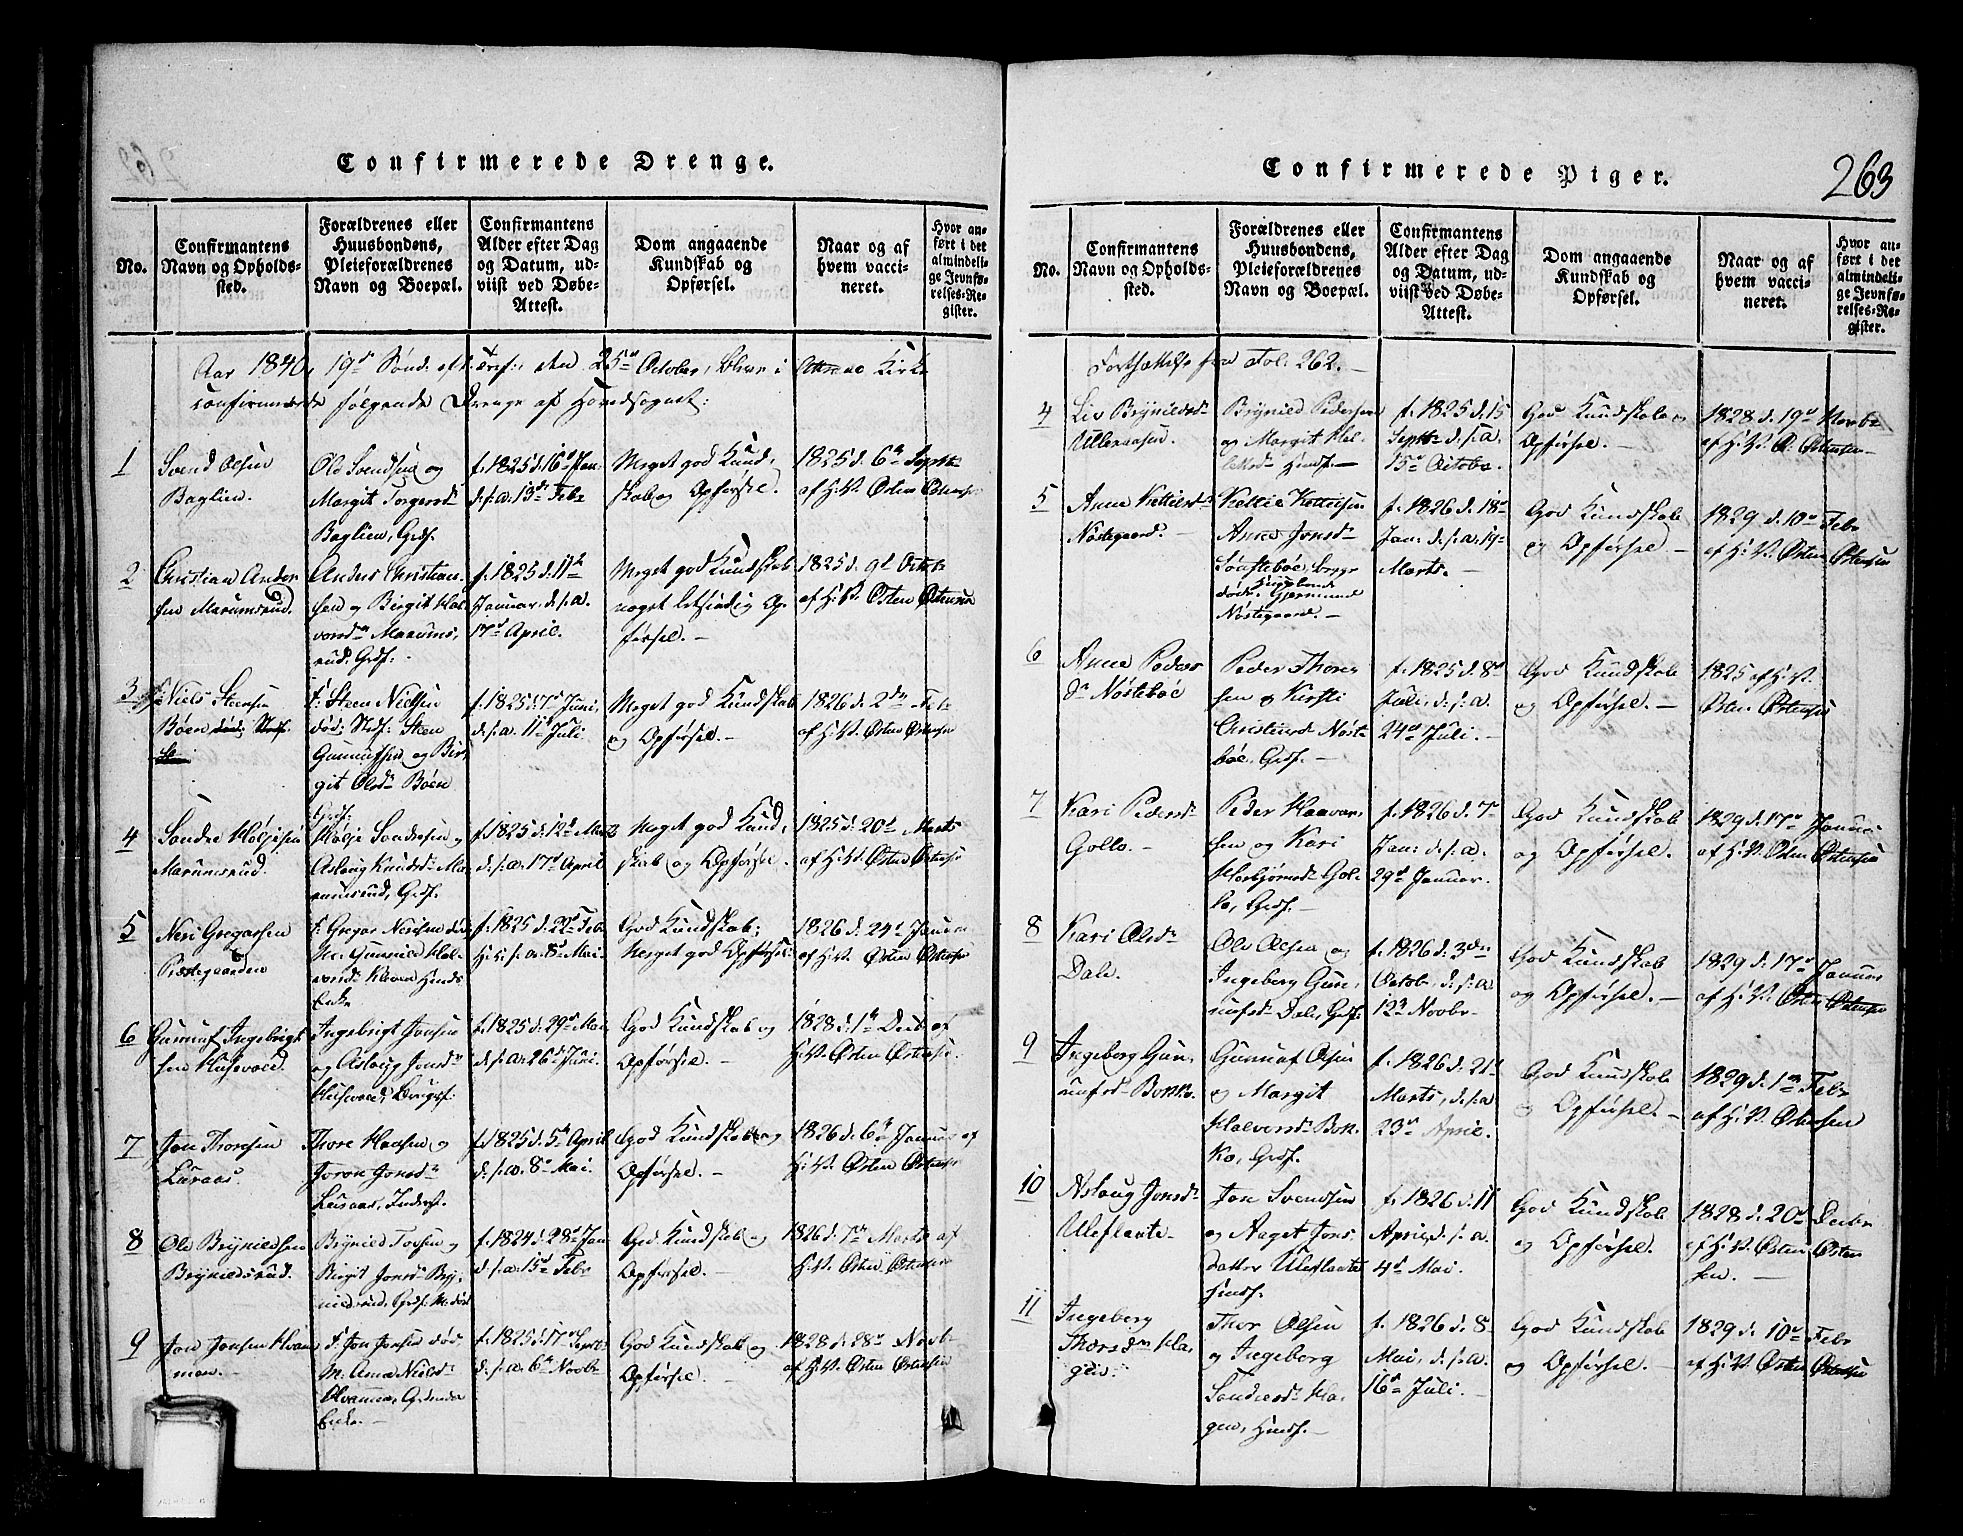 Confirmerede Drenge.
No.
Confirmantens
Navn og Opholds-
sted.
Forældrenes eller
Huusbondens,
Pleieforældrenes
Navn og Boepæl.
Confirmantens
Alder efter Dag
og Datum, ud-
viist ved Døbe-
Attest.
Dom angaaende
Kundskab og
Opførsel.
Naar og af
hvem vacci-
neret.
Hvor an-
ført i det
almindeli-
ge Jevnfø-
relses-Re-
gister.
Aar 1840, 19de Sönd: eft: Tref: den 25de October, bleve i Kirke
confirmerede følgende Drenge af Hovedsognet:
1
Svend Olsen
Baglien.
Ole Svendsen og
Margit Torgersdr
Baglien, Grdf.
f. 1825 d. 16d Jan:
d. s. a. 13de Febr
Meget god Kund,
skab og Opførsel.
1825 d. 6te Septbr
af H.V. Østen Østensen
2
Christian Ander
sen Marumsrud.
Anders Christian
sen og Birgit Hal
vorsdr Maarums,
rud. Grdf.
f. 1825 d. 11te
Januar, d. s. a.
17d April.
Meget god Kundskab
noget letsindig Op
førsel. –
1825 d. 9d Octobr
af H.V. Østen Østensen
3
Niels Steensen
Bøen
F: Steen Nielsen
død; Stedf: Steen
Gunnufsen og Bir,
git Olsdr Bøen
Grdf.
f. 1825 d. 7d Juni,
d. s. a. 11d Juli.
Meget god Kundskab
og Opførsel. –
1826 d. 2den Feb
af H.V. Østen Østensen
4
Sondre Høljesen
Marumsrud.
Hølje Sondresen og
Aslaug Knudsdr Ma
rumsrud, Grdf.
f. 1825 d. 12d Mar
d. s. a. 17d April
Meget god Kund,
skab og Opførsel.
1825 d. 20d Marts
af H.V. Østen Østensen
5
Neri Gregarsen
Præstegaarden
F: Gregar Nerisen død
M: Gunnild Hal
vorsdr Hinds
Enke
f. 1825 d. 22d Feb
d. s. a. 8d Mai.
God Kundskab;
Meget god Opførsel.
1826 d. 24d Januar
af H.V. Østen Østensen
6
Gunnuf Ingebrigt
sen Husevold.
Ingebrigt Jonsen
og Aslaug Jonsdr
Husevold,
f. 1825 d. 29d Mai
d. s. a. 26d Juni.
God Kundskab og
Opførsel. –
1828 d. 1te Decbr af
H.V. Østen Østensen.
7
Jon Thoresen
Luraas.
Thore Hansen og
Joron Jonsdr
Luraas, Inderst.
f. 1825 d. 5te April
d. s. a. 8d Mai.
God Kundskab og
Opførsel. –
1826 d. 6te Januar af
H.V. Østen Østensen
8
Ole Brynildsen
Brynildsrud.
Brynild Torsen og
Birgit Jonsdr Bry,
nildsrud, Grdf: M: død
f. 1824 d. 28d Jan
d. s. a. 15d Febr
God Kundskab og
Opførsel. –
1826 d. 7de Marts af
H.V. Østen Østensen
9
Jon Jonsen Hvam
men.
F: Jon Jonsen død
M. Anne Nielsdr
Hvammen,
Enke. –
f. 1825 d. 17d Septbr
d. s. a. 6te Novbr
God Kundskab og
Opførsel. –
1828 d. 28d Novb
af H.V. Østen Østensen
Confirmerede Piger.
263
No.
Confirmantens
Navn og Opholds-
sted.
Forældrenes eller
Huusbondens,
Pleieforældrenes
Navn og Boepæl.
Confirmantens
Alder efter Dag
og Datum, ud-
viist ved Døbe-
Attest.
Dom angaaende
Kundskab og
Opførsel.
Naar og af
hvem vacci-
neret.
Hvor an-
ført i det
almindeli-
ge Jevnfø-
relses-Re-
gister.
Fortsættelse fra Fol. 262. –
4
Liv Brynildsdr
Brynild Pedersen
og Margit
Hindf. –
f. 1825 d. 15
Septbr d. s. a.
15d Octobr.
God Kundskab og
Opførsel. –
1828 d. 19d Novbr
af H.V. Ø. Østensen
5
Anne Kettilsdr
Nøstegaard. –
Kettil Kettilsen
Anne Jonsdr
begge
døde.
Nøstegaard. –
f. 1826 d. 18
Jan: d. s. a. 19
Marts. –
God Kundskab
og Opførsel –
1829 d. 10d Febr
af H.V. Østen Østensen
6
Anne Peders
dr Nøstebøe
Peder Thores
sen & Kirsti
Christensdr Nøste
bøe, Grdf. –
f. 1825 d. 8d
Juli, d. s. a.
24d Juli. –
God Kundskab
og Opførsel. –
1825 af H.V.
Østen Østensen
7
Kari Pedersdr
Gollo. –
Peder Haavar
sen og Kari
Herbjørnsdr Gol
lo, Grdf. –
f. 1826 d. 7d
Jan: d. s. a.
29d Januar.
God Kundskab
og Opførsel.
1829 d. 17d Januar
af H.V. Østen Østensen
8
Kari Olsdr
Dale.
Ole Olsen og
Ingeborg Gun,
nufsdr Dale, Grdf.
f. 1826 d. 3de
Octobr, d. s. a
12te Novbr
God Kundskab
og Opførsel. –
1829 d. 17d Januar
af H.V. Østen Østensen
9
Ingeborg Gun,
nufsdr Bokko.
Gunnuf Olsen
og Margit
Halvorsdr Bok
ko, Grdf.
f. 1826 d. 21d
Marts, d. s. a
23d April.
God Kundskab
og Opførsel. –
1829 d. 1te Febr
af H.V. Østensen
10
Aslaug Jonsdr
Uleflaate.
Jon Svendsen
og Aaget Jons
datter Uleflaate
Hindf.
f. 1826 d. 11
April, d. s. a
4d Mai.
God Kundskab
og Opførsel.
1828 d. 20d Decbr
af H.V. Østen Østen
sen. –
11
Ingeborg
Thorsdr Ha
gen.
Thor Olsen
og Ingeborg
Sondresdr Ha
gen, Hindf. –
f. 1826 d. 8
Mai, d. s. a.
16d Juli. –
God Kundskab
og Opførsel. –
1829 d. 10d Febr
af H.V. Østen Østensen